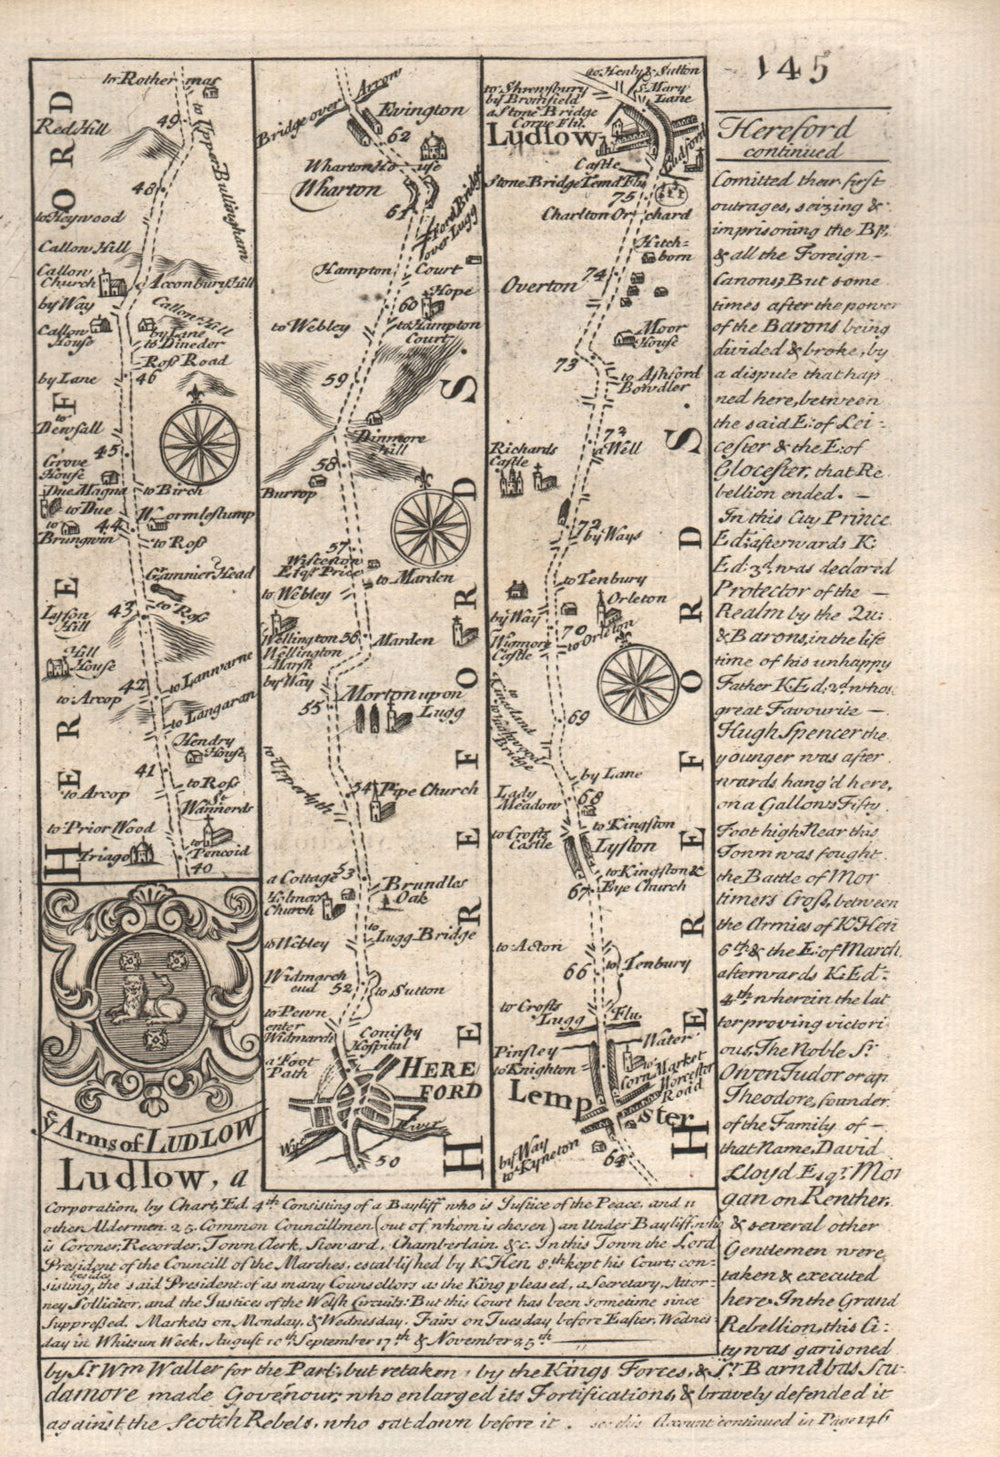 145
Hereford
continued
Comitted their first
outrages, seizing &
imprisoning the BP.
& all the Foreign-
Canons; But some
times after the power
of the Barons being
divided & broke, by
a dispute that hap
ned here, between
the said E: of Lei-
cester & the E: of
Glocester, that Re
bellion ended. —
In this City Prince
Ed: afterwards K:
Ed: 3d. was declared
Protector of the —
Realm by the Qu:
& Barons, in the life
time of his unhappy
Father K. Ed: 2d. whos
great Favourite —
Hugh Spencer the
younger was after
wards hang'd here,
on a Gallows Fifty
Foot high Near this
Town was fought
the Battle of Mor
timers Cross, between
the Armies of K. Hen
6th & the E: of March
afterwards K. Ed:
4th wherein the lat
ter proving victori
ous, The Noble Sr.
Owen Tudor or ap
Theodore, founder
of the Family of —
that Name, David
Lloyd Esqr. Mor
gan on Renther,
& several other
Gentlemen were
taken & executed
here. In the Grand
Rebellion, this Ci-
ty was garisoned
by Sr. Wm Waller for the Parl: but retaken, by the Kings Forces, & Sr. Barnabas Scu-
damore made Govenour; who enlarged its Fortifications, & bravely defended it
against the Scotch Rebels, who sat down before it. see this Account continued in Page 146
HEREFORD
to Rother mas
49
to Upper Bullingham
Red Hill
48
to Heywood
Callow Hill
Callow
Church
Acconbury Hill
by Way
Callow Hill
Callow
House
by Lane
to Dineder
Ross Road
by Lane
46
to
Dewsall
45
Grove
House
Due Magna
to Birch
to Due
Wormlestump
to
Brungwin
44
to Ross
Gamnier Head
43
to Ross
Lyson
Hill
Hill
House
to Lanwarne
42
to Arcop
to Langaran
Hendry
House
41
to Arcop
to Ross
St
Wannerds
to Prior Wood
Triago
to
Pencoid
40
Ye Arms of LUDLOW
HEREFORDS.
Bridge over Arrow
Evington
62
Wharton House
Wharton
61
Ford Bridge
over Lugg
Hampton Court
Hope
60
to Webley
to Hampton
Court
59
Dinmore
hill
58
Burrop
57
Wisteston
Esqr. Price
to Marden
to Webley
Wellington
56
Marden
Wellington
Marsh
by Way
Morton upon
Lugg
55
to Upperlyth
54
Pipe Church
53
a Cottage
Brundles
Oak
Holmas
Church
to
Lugg Bridge
to Webley
Widmarch
end
52
to Sutton
to Pewn
enter
Widmarch
Conisby
Hospital
a Foot
Path
HERE
FORD
Wye
River
50
HEREFORDS.
to Henly & Sutton
to Shrewsbury
by Bromfield
St. Mary
Lane
a Stone Bridge
Corve Flu.
Ludlow
Castle
Ludford
Stone Bridge Temd Flu
75
Charlton Orchard
Hitch=
born
74
Overton
Moor
House
73
to Ashford
Bowdler
72
a Well
Richards
Castle
72
by Ways
to Tenbury
Orleton
by Way
70
to Orleton
Wigmore
Castle
69
by Lane
Lady
Meadow
68
to Crofts
Castle
to Kingston
Lyston
to Kingston &
Eye Church
67
to Aston
66
to Tenbury
to Crofts
Lugg Flu.
Pinsley
Water
to Knighton
to
Corn Market
Worcester
Road
Lemp ster
by Way
to Kyneton
64
Ludlow, a
Corporation, by Chart, Ed. 4th. Consisting of a Bayliff who is Justice of the Peace, and 11
other Aldermen. 25. Common Councillmen (out of whom is chosen) an Under Bayliff, who
is Coroner, Recorder, Town Clerk, Steward, Chamberlain. &c. In this Town the Lord
President of the Councill of the Marches, established by K. Hen. 8th. kept his Court; con-
sisting, besides the said President of as many Counsellors as the King pleased, a Secretary, Attor-
ney Sollicitor, and the Justices of the Welsh Circuits: But this Court has been sometime since
Suppressed. Markets on Monday, & Wednesday. Fairs on Tuesday before Easter, Wednes
day in Whitsun Week, August 10th September 17th & November 25th